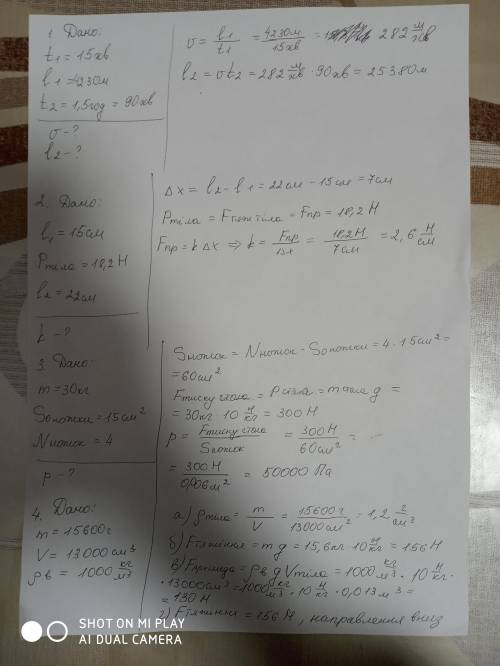 1. Дано:
t1 = 15хв
l1 = 4230м
t2 = 1,5год = 90хв
υ - ?
l2 - ?
υ = l1/t1 = 4230м/15хв = 282 м/хв
l2 = υt2 = 282 м/хв · 90хв = 25380м
2. Дано:
l1 = 15см
Pтіла = 18,2Н
l2 = 22см
k - ?
Δx = l2 - l1 = 22см - 15см = 7см
Pтіла = Fтяж тіла = Fпр = 18,2Н
Fпр = kΔx ⇒ k = Fпр/Δx = 18,2Н/7см = 2,6 Н/см
3. Дано:
m = 30кг
Sоножки = 15см²
Nножок = 4
p - ?
Sножок = Nножок · Sоножки = 4 · 15см² =
= 60см²
Fтиску стола = Pстола = mстола g =
= 30кг · 10 Н/кг = 300Н
p = Fтиску стола/Sножок = 300Н/60см² =
= 300Н/0,006м² = 50000 Па
4. Дано:
m = 15600г
V = 13000см³
ρв = 1000 кг/м³
а) ρтіла = m/V = 15600г/13000см³ = 1,2 г/см³
б) Fтяжіння = mg = 15,6кг · 10 Н/кг = 156Н
в) Fархімеда = ρв g Vтіла = 1000 кг/м³ · 10 Н/кг ·
· 13000см³ = 1000 кг/м³ · 10 Н/кг · 0,013м³ =
= 130Н
г) Fтяжіння = 156Н, направлення вниз
SHOT ON MI PLAY
AI DUAL CAMERA